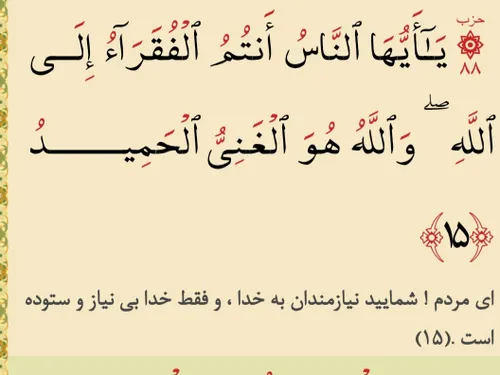 حزب
۸۸
يَـٰٓأَيُّهَا ٱلنَّاسُ أَنتُمُ ٱلْفُقَرَآءُ إِلَـى
ٱللَّهِ ۖ وَٱللَّهُ هُوَ ٱلْغَنِىُّ ٱلْحَمِيـــدُ
﴿۱۵﴾
ای مردم ! شمایید نیازمندان به خدا ، و فقط خدا بی نیاز و ستوده
است .(۱۵)